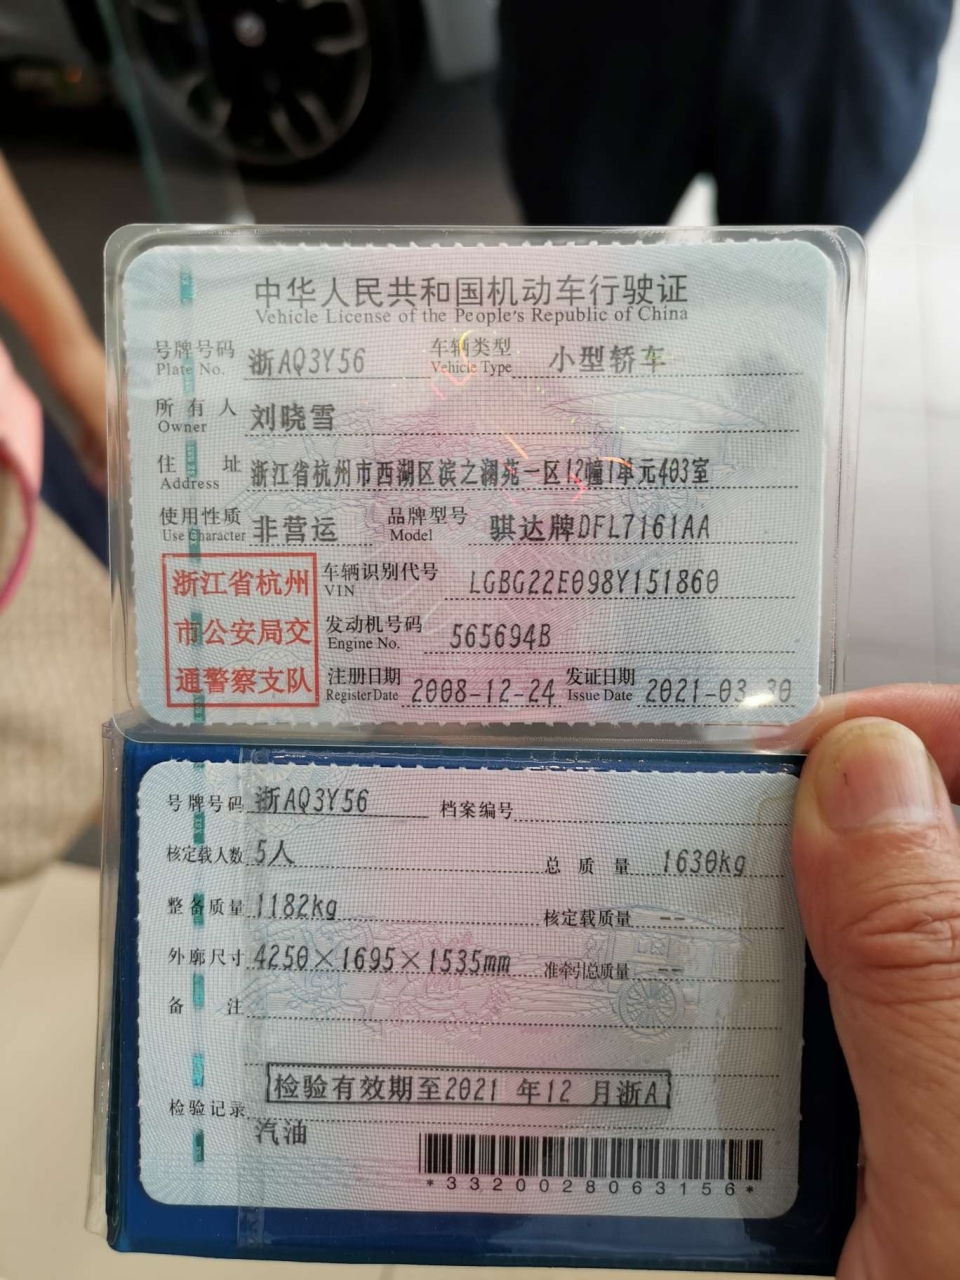 中华人民共和国机动车行驶证
Vehicle License of the People's Republic of China
号牌号码 浙AQ3Y56 车辆类型 小型轿车
Plate No. Vehicle Type
所有人 刘晓雪
Owner
住址 浙江省杭州市西湖区滨之澜苑一区12幢1单元403室
Address
使用性质 非营运 品牌型号 骐达牌DFL7161AA
Use Character Model
浙江省杭州
市公安局交
通警察支队
车辆识别代号 LGBG22E098Y151860
VIN
发动机号码 565694B
Engine No.
注册日期 2008-12-24 发证日期 2021-03-30
Register Date Issue Date
号牌号码 浙AQ3Y56 档案编号
核定载人数 5人 总质量 1630kg
整备质量 1182kg 核定载质量 --
外廓尺寸 4250×1695×1535mm 准牵引总质量 --
备注
检验有效期至2021 年12 月浙A
检验记录
汽油
*3320028063156*